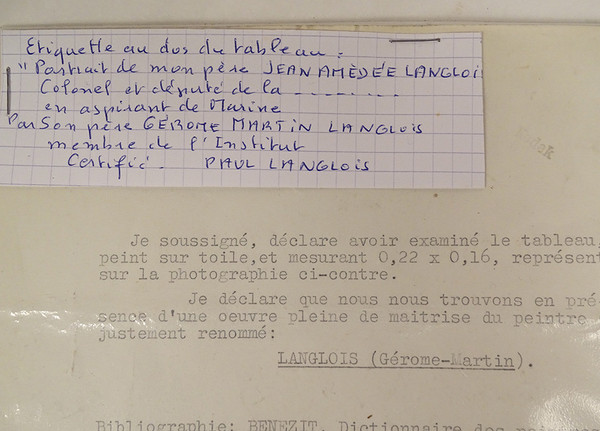 Etiquette au dos du tableau :
"Portrait de mon père JEAN AMÈDÉE LANGLOI
Colonel et député de la _ _ _ _ _ _ _ _
en aspirant de Marine
Par son père GÉROME MARTIN LANGLOIS
membre de l'Institut
Certifié. PAUL LANGLOIS
Je soussigné, déclare avoir examiné le tableau,
peint sur toile,et mesurant 0,22 x 0,16, représent
sur la photographie ci-contre.
Je déclare que nous nous trouvons en pré-
sence d'une oeuvre pleine de maitrise du peintre
justement renommé:
LANGLOIS (Gérome-Martin).
Bibliographie: BENEZIT, Dictionnaire des